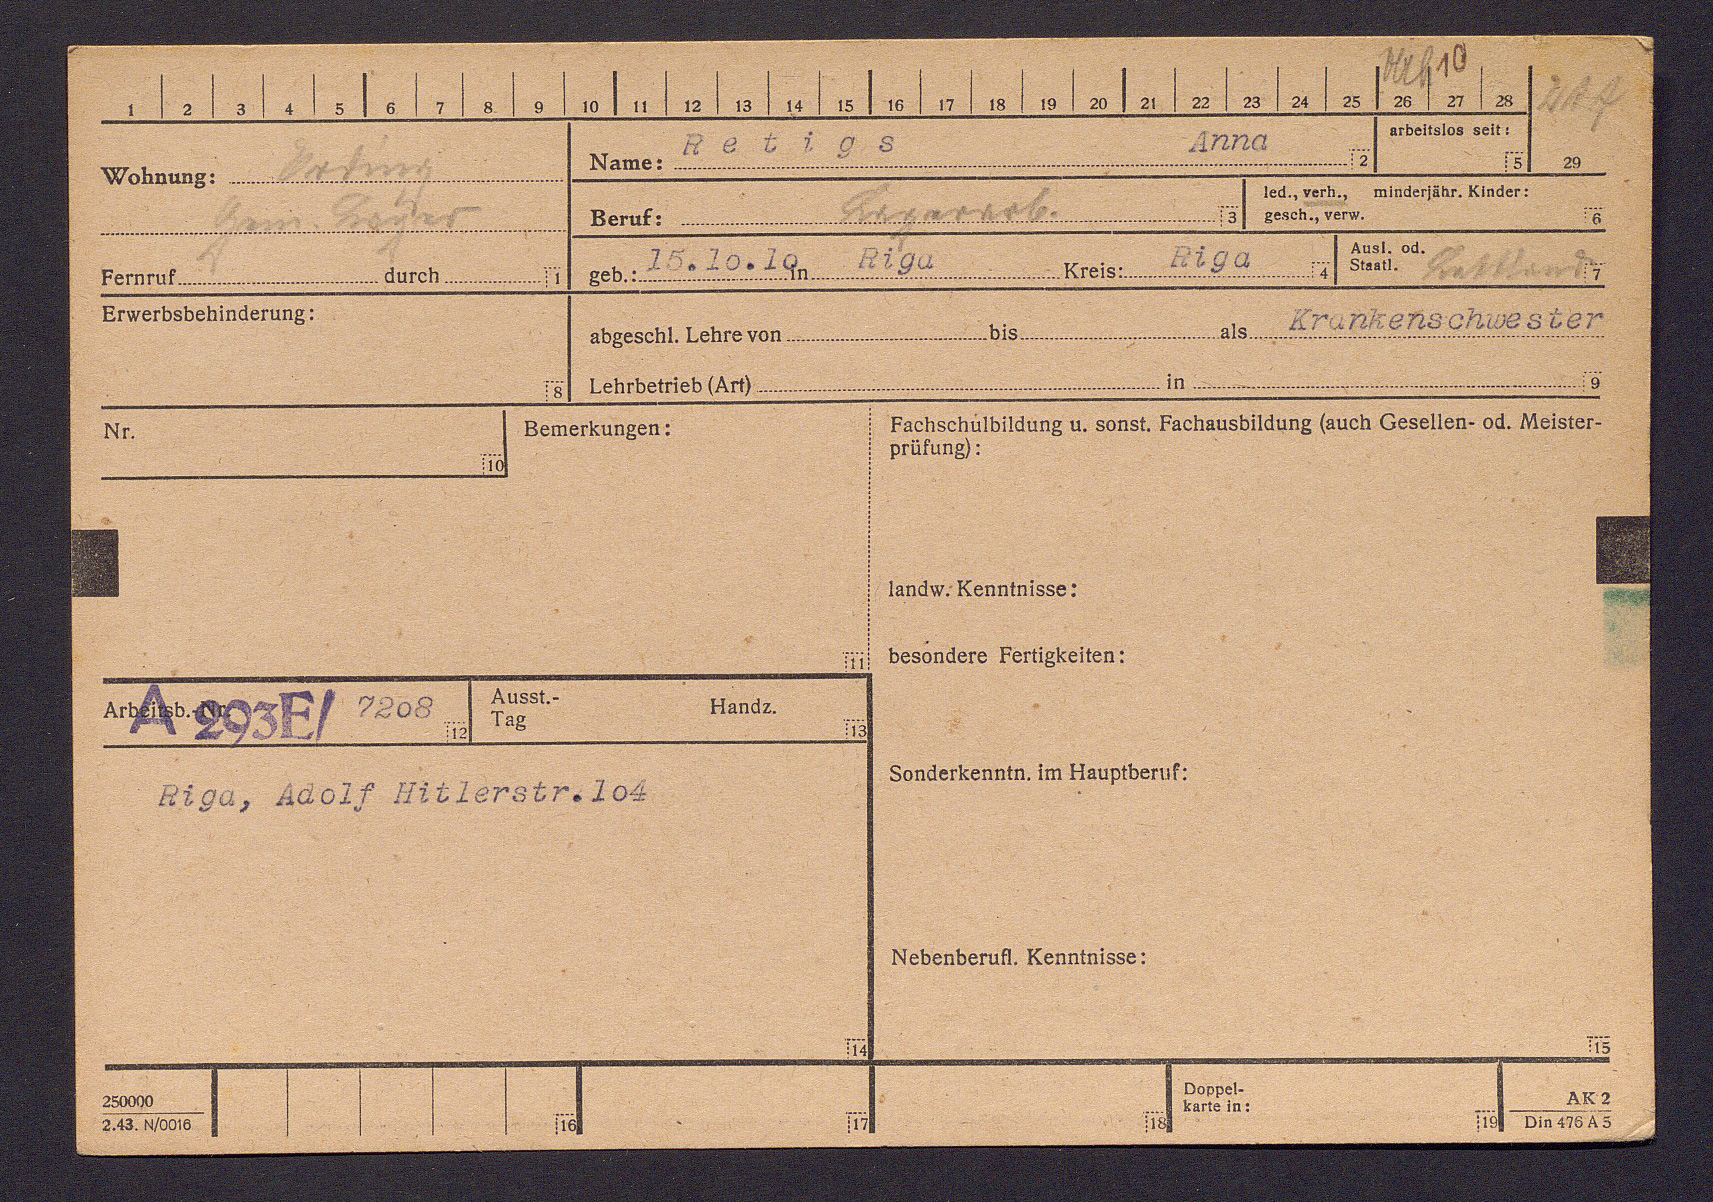 1 2 3 4 5 6 7 8 9 10 11 12 13 14 15 16 17 18 19 20 21 22 23 24 25 26 27 28
10
Wohnung: Erding
Gem. Lager
Fernruf durch 1
Name: Retigs Anna 2
arbeitslos seit: 5
29
Beruf: Lagerarb. 3
led., verh., minderjähr. Kinder:
gesch., verw. 6
geb.: 15.10.10 in Riga Kreis: Riga 4
Ausl. od.
Staatl. Lettland 7
Erwerbsbehinderung:
8
abgeschl. Lehre von bis als Krankenschwester
Lehrbetrieb (Art) in 9
Nr.
10
Bemerkungen:
11
Fachschulbildung u. sonst. Fachausbildung (auch Gesellen- od. Meister-
prüfung):
landw. Kenntnisse:
besondere Fertigkeiten:
Arbeitsb.-Nr. A 293E/ 7208 12
Ausst.-
Tag Handz. 13
Riga, Adolf Hitlerstr.104
14
Sonderkenntn. im Hauptberuf:
Nebenberufl. Kenntnisse:
15
250000
2.43. N/0016
16
17
18
Doppel-
karte in:
19
AK 2
Din 476 A 5